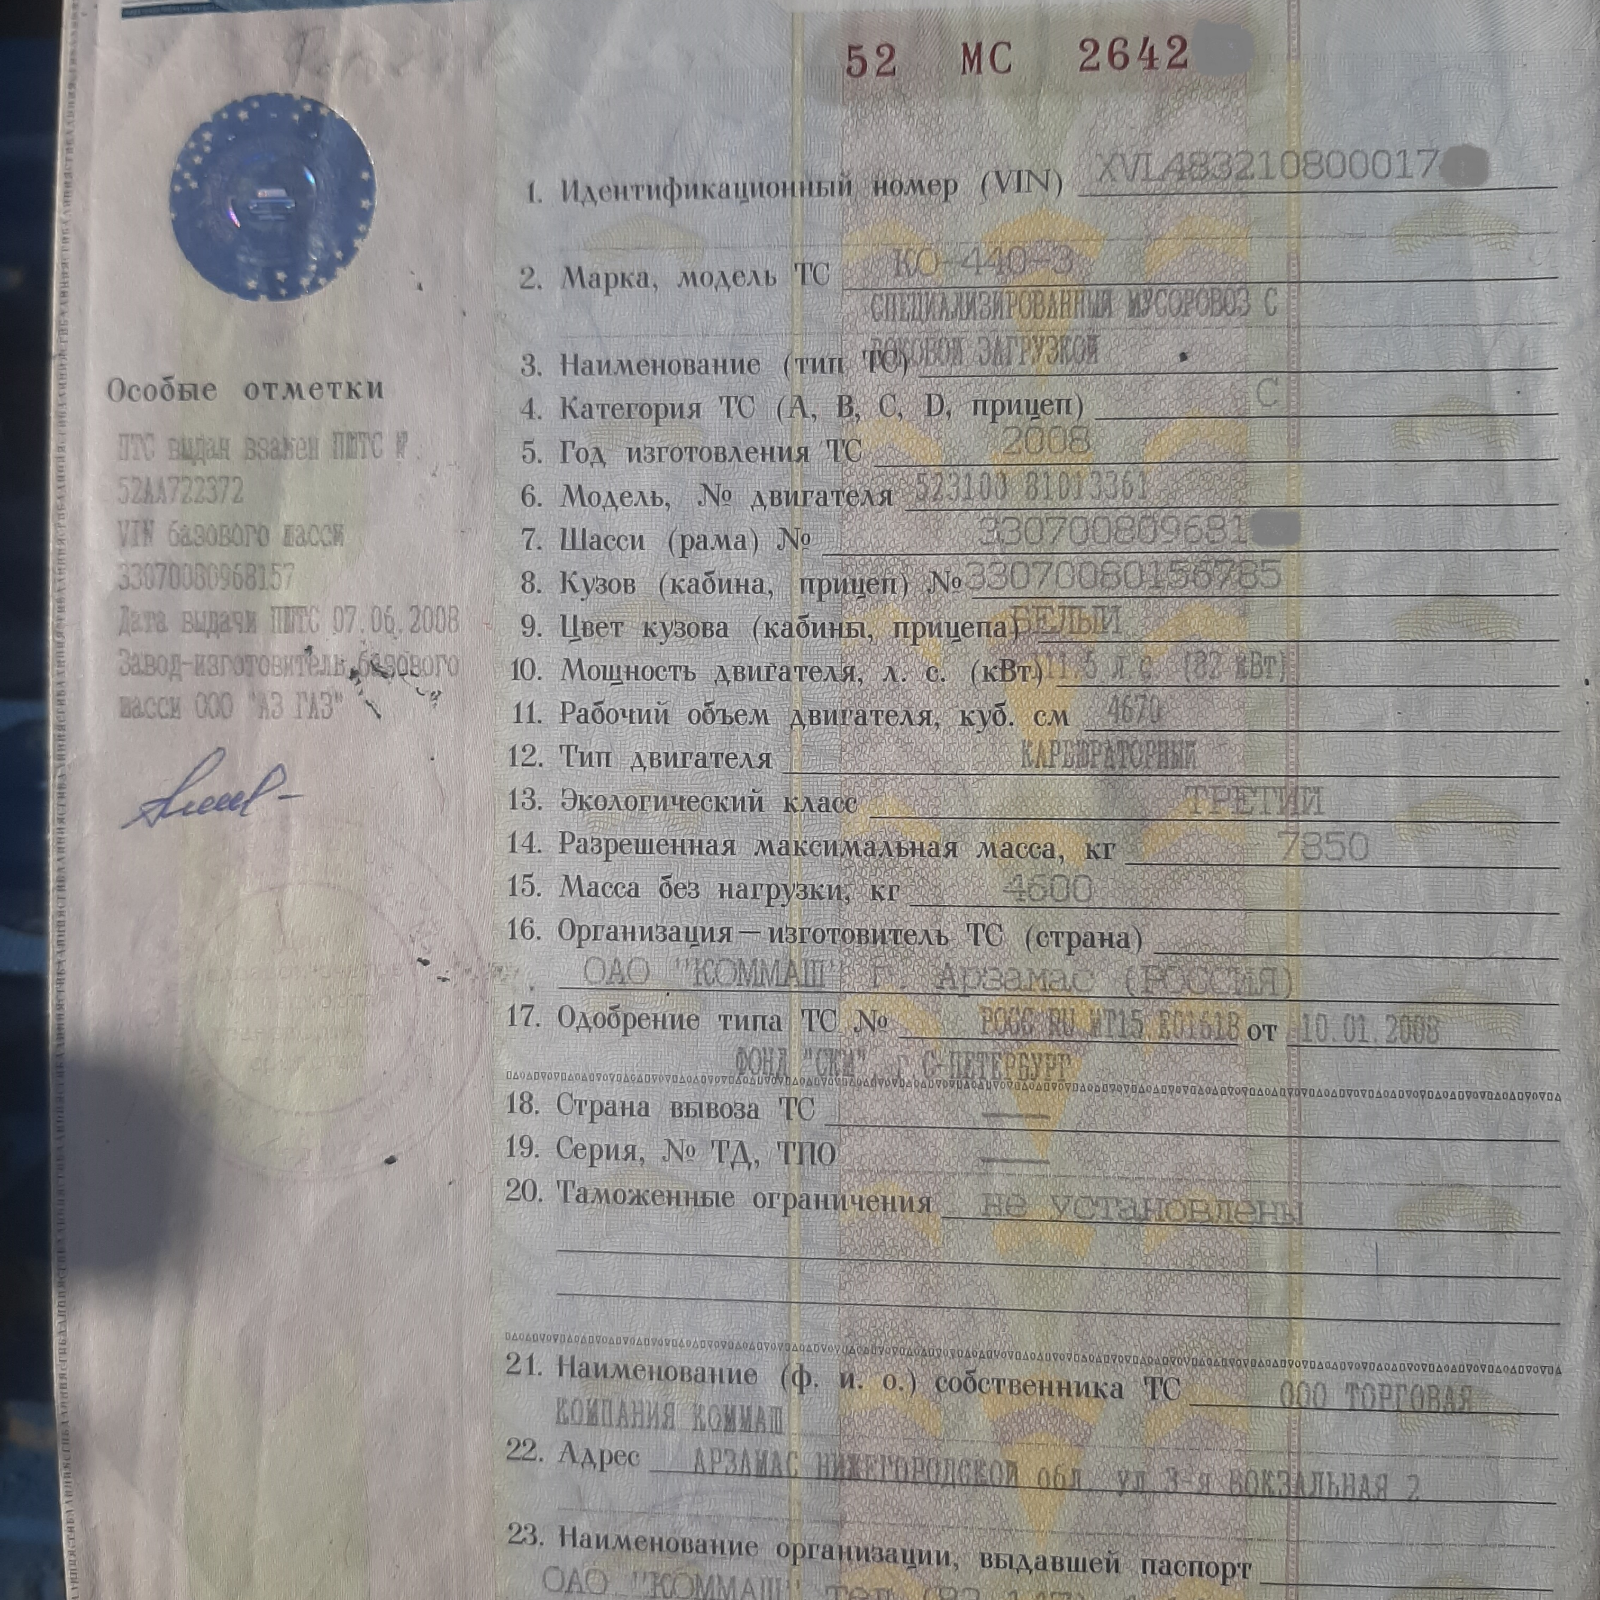 52 МС 2642
1. Идентификационный номер (VIN) XVL4832108000017
2. Марка, модель ТС КО-440-3
СПЕЦИАЛИЗИРОВАННЫЙ МУСОРОВОЗ С
БОКОВОЙ ЗАГРУЗКОЙ
3. Наименование (тип ТС)
4. Категория ТС (А, В, С, D, прицеп) С
5. Год изготовления ТС 2008
6. Модель, № двигателя 523100 81013361
7. Шасси (рама) № 330700809681
8. Кузов (кабина, прицеп) № 33070080156785
9. Цвет кузова (кабины, прицепа) БЕЛЫЙ
10. Мощность двигателя, л. с. (кВт) 111.5 л.с. (82 кВт)
11. Рабочий объем двигателя, куб. см 4670
12. Тип двигателя КАРБЮРАТОРНЫЙ
13. Экологический класс ТРЕТИЙ
14. Разрешенная максимальная масса, кг 7850
15. Масса без нагрузки, кг 4600
16. Организация—изготовитель ТС (страна)
ОАО "КОММАШ" г. Арзамас (РОССИЯ)
17. Одобрение типа ТС № РОСС RU.МТ15.Е01618 от 10.01.2008
ФОНД "СКМ", г С-ПЕТЕРБУРГ
18. Страна вывоза ТС —
19. Серия, № ТД, ТПО —
20. Таможенные ограничения не установлены
21. Наименование (ф. и. о.) собственника ТС ООО ТОРГОВАЯ
КОМПАНИЯ КОММАШ
22. Адрес АРЗАМАС НИЖЕГОРОДСКОЙ обл. ул 3-я ВОКЗАЛЬНАЯ 2
23. Наименование организации, выдавшей паспорт
ОАО "КОММАШ"
Особые отметки
ПТС выдан взамен ПШТС №
52АА722372
VIN базового шасси
33070080968157
Дата выдачи ПШТС 07.06.2008
Завод-изготовитель базового
шасси ООО "АЗ ГАЗ"